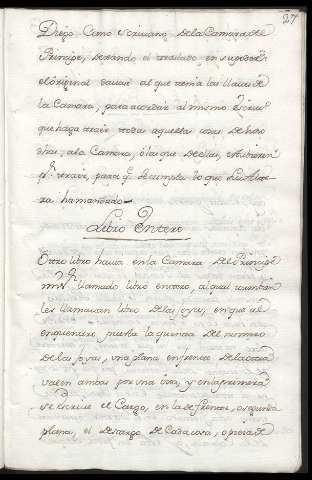 27
Diego Cano escrivano de la Camara del
Principe, dexando el traslado en su poder:
el original davase al que tenia las llaves de
la Camara, para acordar al mismo Escriv.
que haga traer todas aquellas cosas de
dhas, a la Camara, o las que de ellas,
traer, para q. se cumpla lo que Su Alte
za ha mandado
Libro Entero
Otro libro havia en la Camara del Principe
llamado libro entero, al qual
les llamavan libro de las joyas, en que al
puesta la quenta del numero
de las joyas, una plana en frente de la otra
valen ambas por una hoja, y en la primera
se escrive el Cargo, en la de frente, o segunda
plana, el descargo de cada cosa, o pieza de